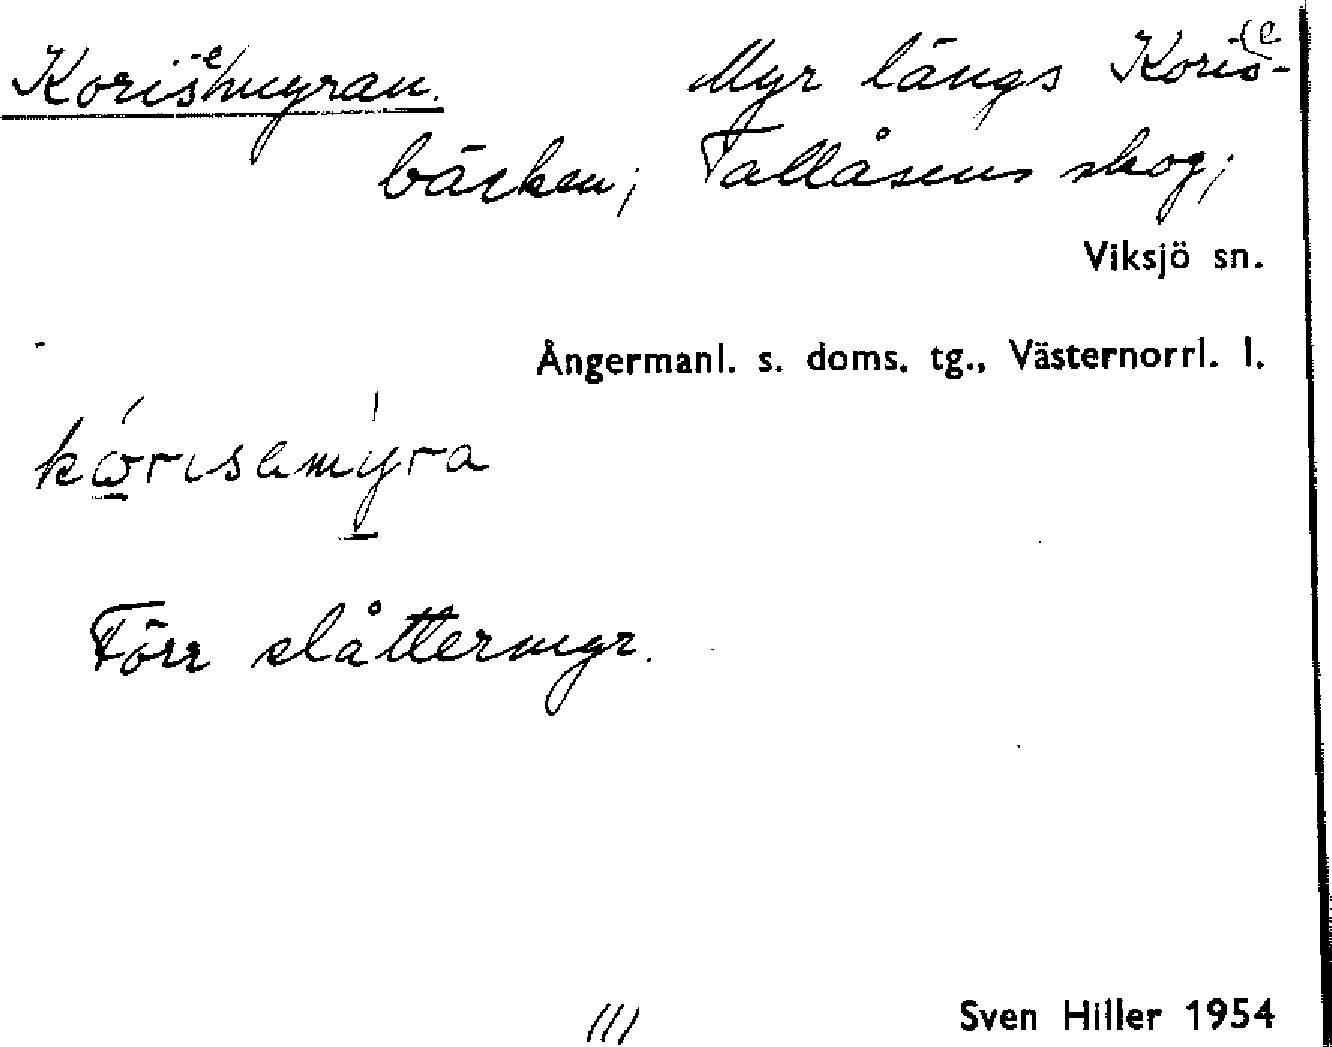 Korisemyran. Myr längs Korise-
bäcken; Tallåsens skog;
Viksjö sn.
Ångermanl. s. doms. tg., Västernorrl. l.
kórisemyra
Förr slåttermyr.
Sven Hiller 1954